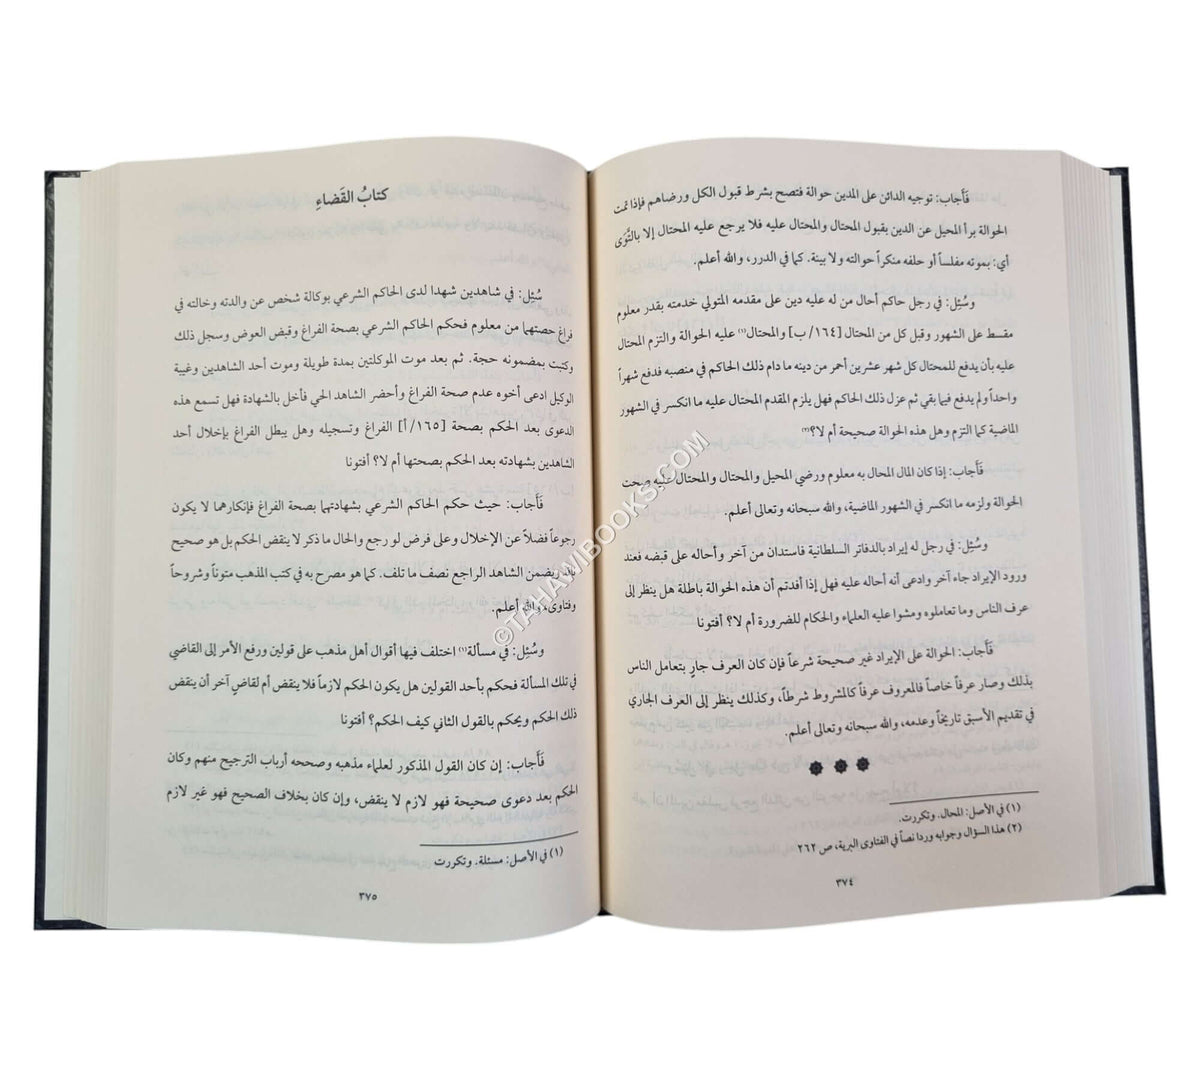 فَأَجاب: توجيه الدائن على المدين حوالة فتصح بشرط قبول الكل ورضاهم فإذا تمت
الحوالة برأ المحيل عن الدين بقبول المحتال والمحتال عليه فلا يرجع عليه المحتال إلا بالتَّوَى
أي: بموته مفلساً أو حلفه منكراً حوالته ولا بينة. كما في الدرر، والله أعلم.
وسُئِل: في رجل حاكم أحال من له عليه دين على مقدمه المتولي خدمته بقدر معلوم
مقسط على الشهور وقبل كل من المحتال [١٦٤/ب] والمحتال(١) عليه الحوالة والتزم المحتال
عليه بأن يدفع للمحتال كل شهر عشرين أحمر من دينه ما دام ذلك الحاكم في منصبه فدفع شهراً
واحداً ولم يدفع فيما بقي ثم عزل ذلك الحاكم فهل يلزم المقدم المحتال عليه ما انكسر في الشهور
الماضية كما التزم وهل هذه الحوالة صحيحة أم لا؟(٢)
فَأَجاب: إذا كان المال المحال به معلوم ورضي المحيل والمحتال والمحتال عليه صحت
الحوالة ولزمه ما انكسر في الشهور الماضية، والله سبحانه وتعالى أعلم.
وسُئِل: في رجل له إيراد بالدفاتر السلطانية فاستدان من آخر وأحاله على قبضه فعند
ورود الإيراد جاء آخر وادعى أنه أحاله عليه فهل إذا أفدتم أن هذه الحوالة باطلة هل ينظر إلى
عرف الناس وما تعاملوه ومشوا عليه العلماء والحكام للضرورة أم لا؟ أفتونا
فَأَجاب: الحوالة على الإيراد غير صحيحة شرعاً فإن كان العرف جارٍ بتعامل الناس
بذلك وصار عرفاً خاصاً فالمعروف عرفاً كالمشروط شرطاً، وكذلك ينظر إلى العرف الجاري
في تقديم الأسبق تاريخاً وعدمه، والله سبحانه وتعالى أعلم.
(١) في الأصل: المحال. وتكررت.
(٢) هذا السؤال وجوابه وردا نصاً في الفتاوى البرية، ص ٢٦٢
٣٧٤
كتابُ القَضاءِ
سُئِل: في شاهدين شهدا لدى الحاكم الشرعي بوكالة شخص عن والدته وخالته في
فراغ حصتهما من معلوم فحكم الحاكم الشرعي بصحة الفراغ وقبض العوض وسجل ذلك
وكتبت بمضمونه حجة. ثم بعد موت الموكلتين بمدة طويلة وموت أحد الشاهدين وغيبة
الوكيل ادعى أخوه عدم صحة الفراغ وأحضر الشاهد الحي فأخل بالشهادة فهل تسمع هذه
الدعوى بعد الحكم بصحة [١٦٥/أ] الفراغ وتسجيله وهل يبطل الفراغ بإخلال أحد
الشاهدين بشهادته بعد الحكم بصحتها أم لا؟ أفتونا
فَأَجاب: حيث حكم الحاكم الشرعي بشهادتهما بصحة الفراغ فإنكارهما لا يكون
رجوعاً فضلاً عن الإخلال وعلى فرض لو رجع والحال ما ذكر لا ينقض الحكم بل هو صحيح
نافذ ويضمن الشاهد الراجع نصف ما تلف. كما هو مصرح به في كتب المذهب متوناً وشروحاً
وفتاوى، والله أعلم.
وسُئِل: في مسألة(١) اختلف فيها أقوال أهل مذهب على قولين ورفع الأمر إلى القاضي
في تلك المسألة فحكم بأحد القولين هل يكون الحكم لازماً فلا ينقض أم لقاضٍ آخر أن ينقض
ذلك الحكم ويحكم بالقول الثاني كيف الحكم؟ أفتونا
فَأَجاب: إن كان القول المذكور لعلماء مذهبه وصححه أرباب الترجيح منهم وكان
الحكم بعد دعوى صحيحة فهو لازم لا ينقض، وإن كان بخلاف الصحيح فهو غير لازم
(١) في الأصل: مسئلة. وتكررت
٣٧٥
©TAHAWIBOOKS.COM